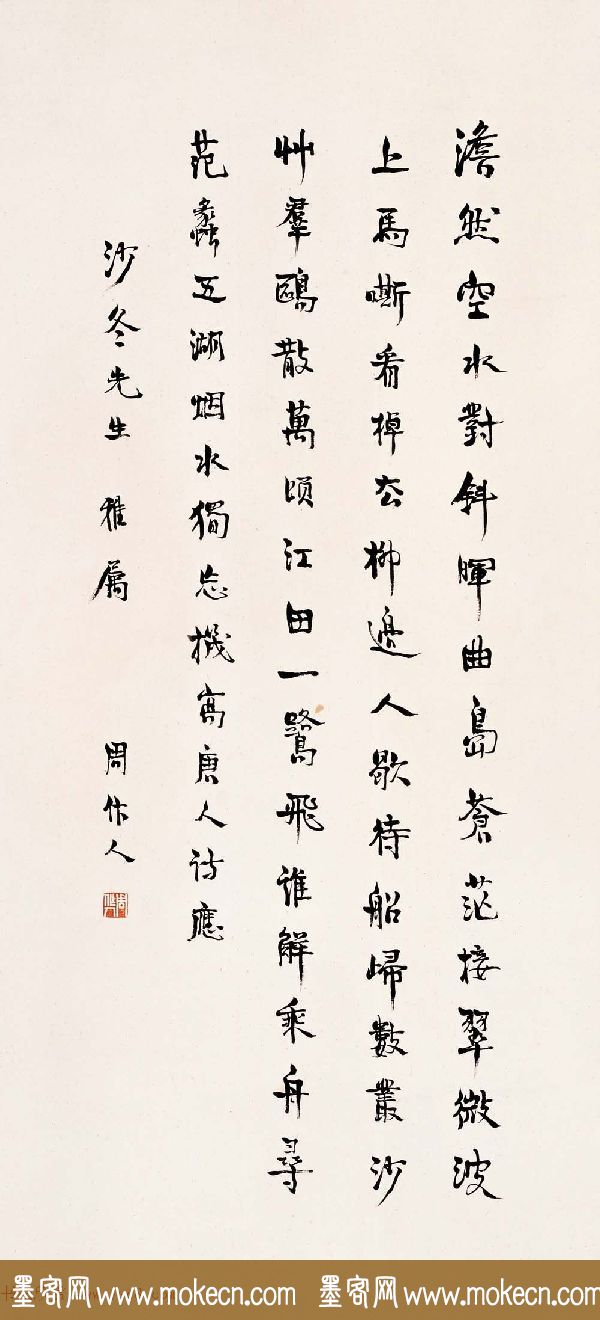 澹然空水對斜暉曲島蒼茫接翠微波
上馬嘶看棹去柳邊人歇待船歸數叢沙
艸羣鷗散萬頃江田一鷺飛誰解乘舟尋
范蠡五湖烟水獨忘機寫唐人詩應
沙冬先生 雅屬
周作人
墨客网 www.mokecn.com 墨客网 www.mokecn.com